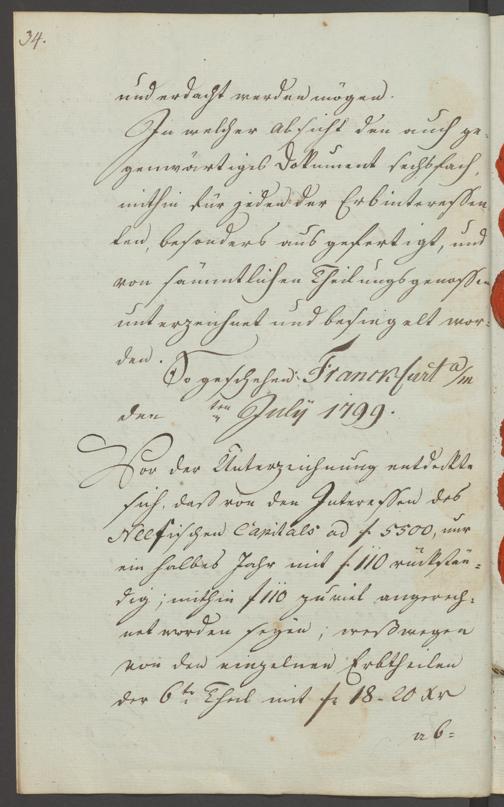 34.
und erdacht werden mögen.
In welcher Absicht denn auch ge-
genwärtiges Dokument sechsfach,
mithin für jeden der Erbinteressen
ten, besonders ausgefertigt, und
von sämmtlichen Theilungsgenossen
unterzeichnet und besiegelt wor-
den. So geschehen: Franckfurt a/m
den ten July 1799.
Vor der Unterzeichnung entdeckte
sich, daß von den Interessen des
Neefischen Capitals ad f. 5500, nur
ein halbes Jahr mit f. 110 rückstän-
dig; mithin f 110 zuviel angerech-
net worden seyen; weßwegen
von den einzelnen Erbtheilen
der 6te Theil mit f. 18-20 Xr
ab=